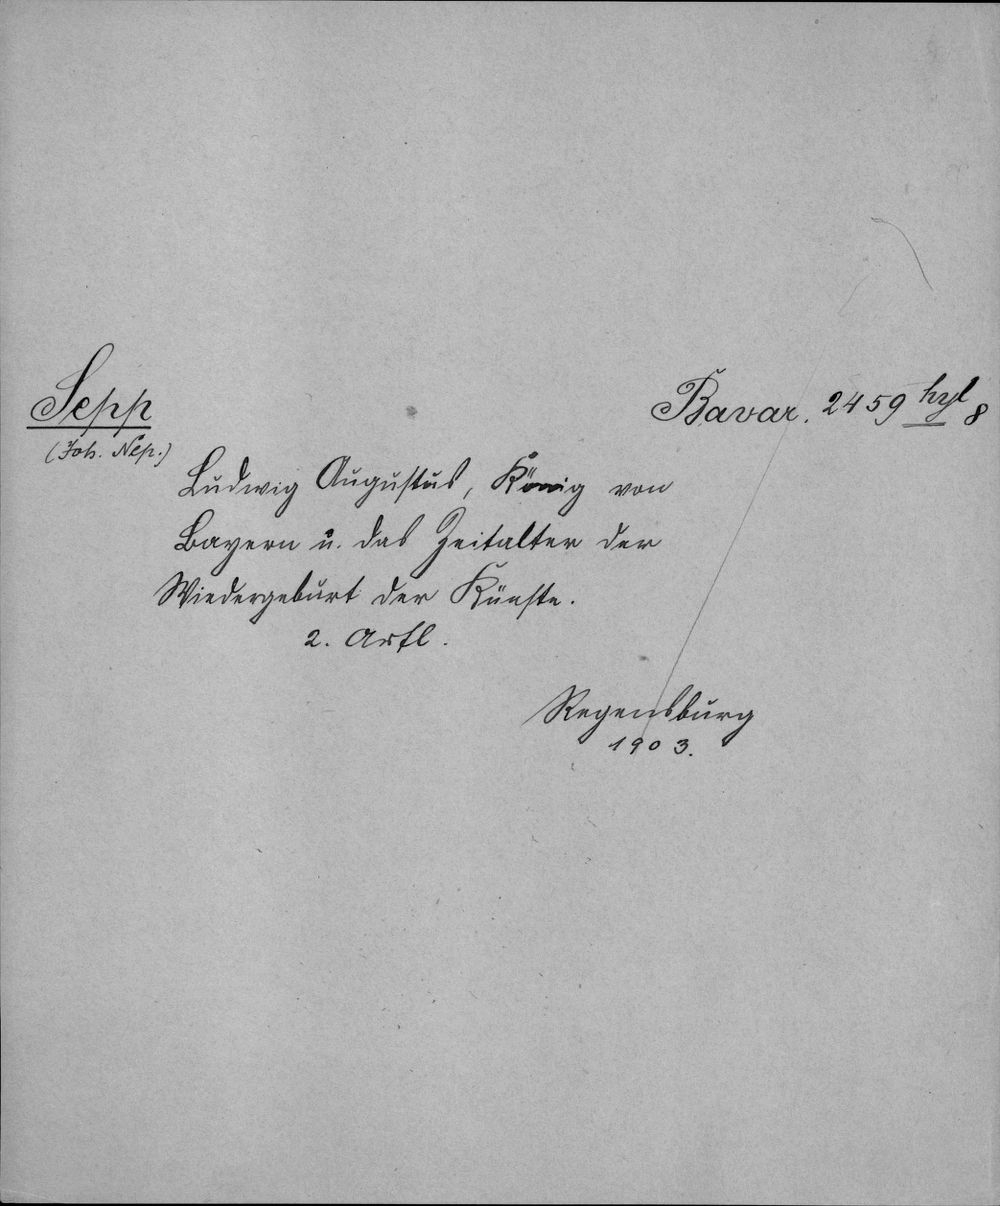 Sepp
(Joh. Nep.)
Bavar. 2459 hyl 8
Ludwig Augustus, König von
Bayern u. das Zeitalter der
Wiedergeburt der Künste.
2. Aufl.
Regensburg
1903.